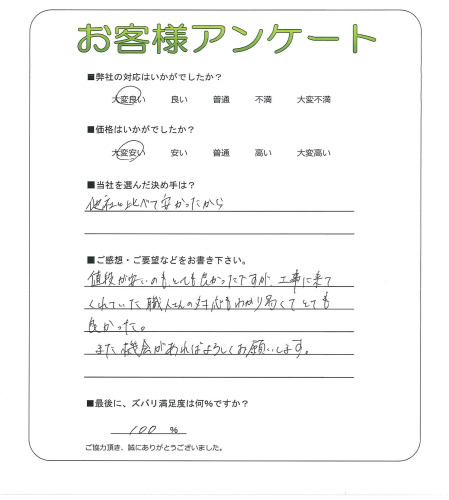 お客様アンケート
■弊社の対応はいかがでしたか？
大変良い 良い 普通 不満 大変不満
■価格はいかがでしたか？
大変安い 安い 普通 高い 大変高い
■当社を選んだ決め手は？
他社と比べて安かったから
■ご感想・ご要望などをお書き下さい。
値段が安いのもとても良かったですが、工事に来て
くれていた職人さんの対応もわかり易くてとても
良かった。
また機会があればよろしくお願いします。
■最後に、ズバリ満足度は何％ですか？
100 ％
ご協力頂き、誠にありがとうございました。